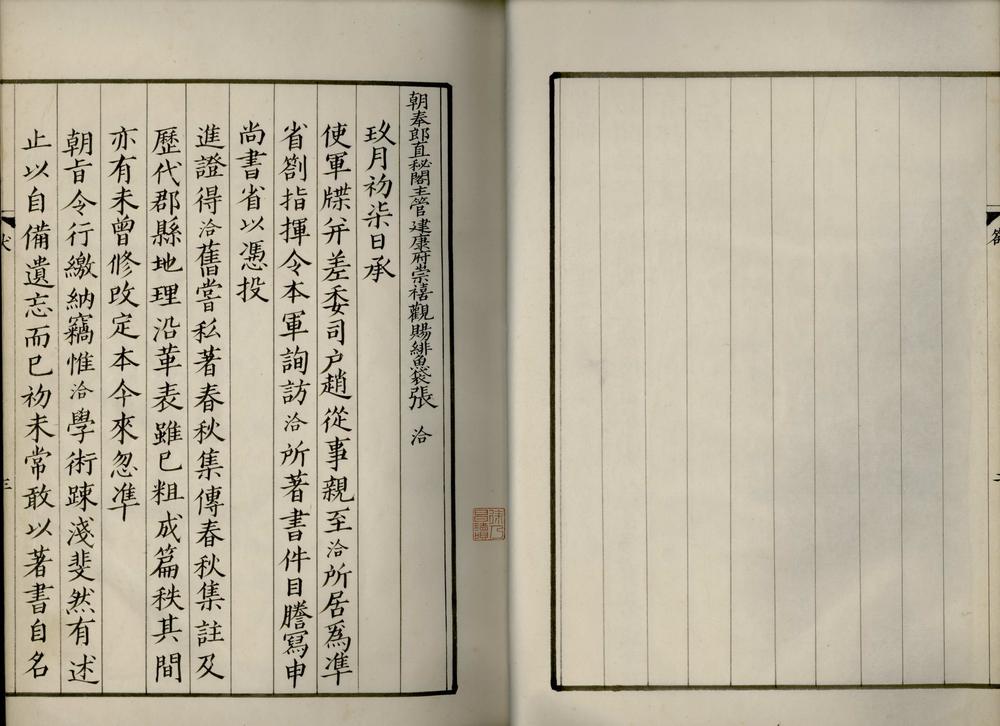 朝奉郎直秘閣主管建康府崇禧觀賜緋魚袋張洽
玖月初柒日承
使軍牒并差委司户趙從事親至洽所居爲準
省劄指揮令本軍詢訪洽所著書件目謄寫申
尚書省以憑投
進證得洽舊嘗私著春秋集傳春秋集註及
歷代郡縣地理沿革表雖已粗成篇秩其間
亦有未曾修改定本今來忽準
朝旨令行繳納竊惟洽學術踈淺斐然有述
止以自備遺忘而已初未常敢以著書自名
三